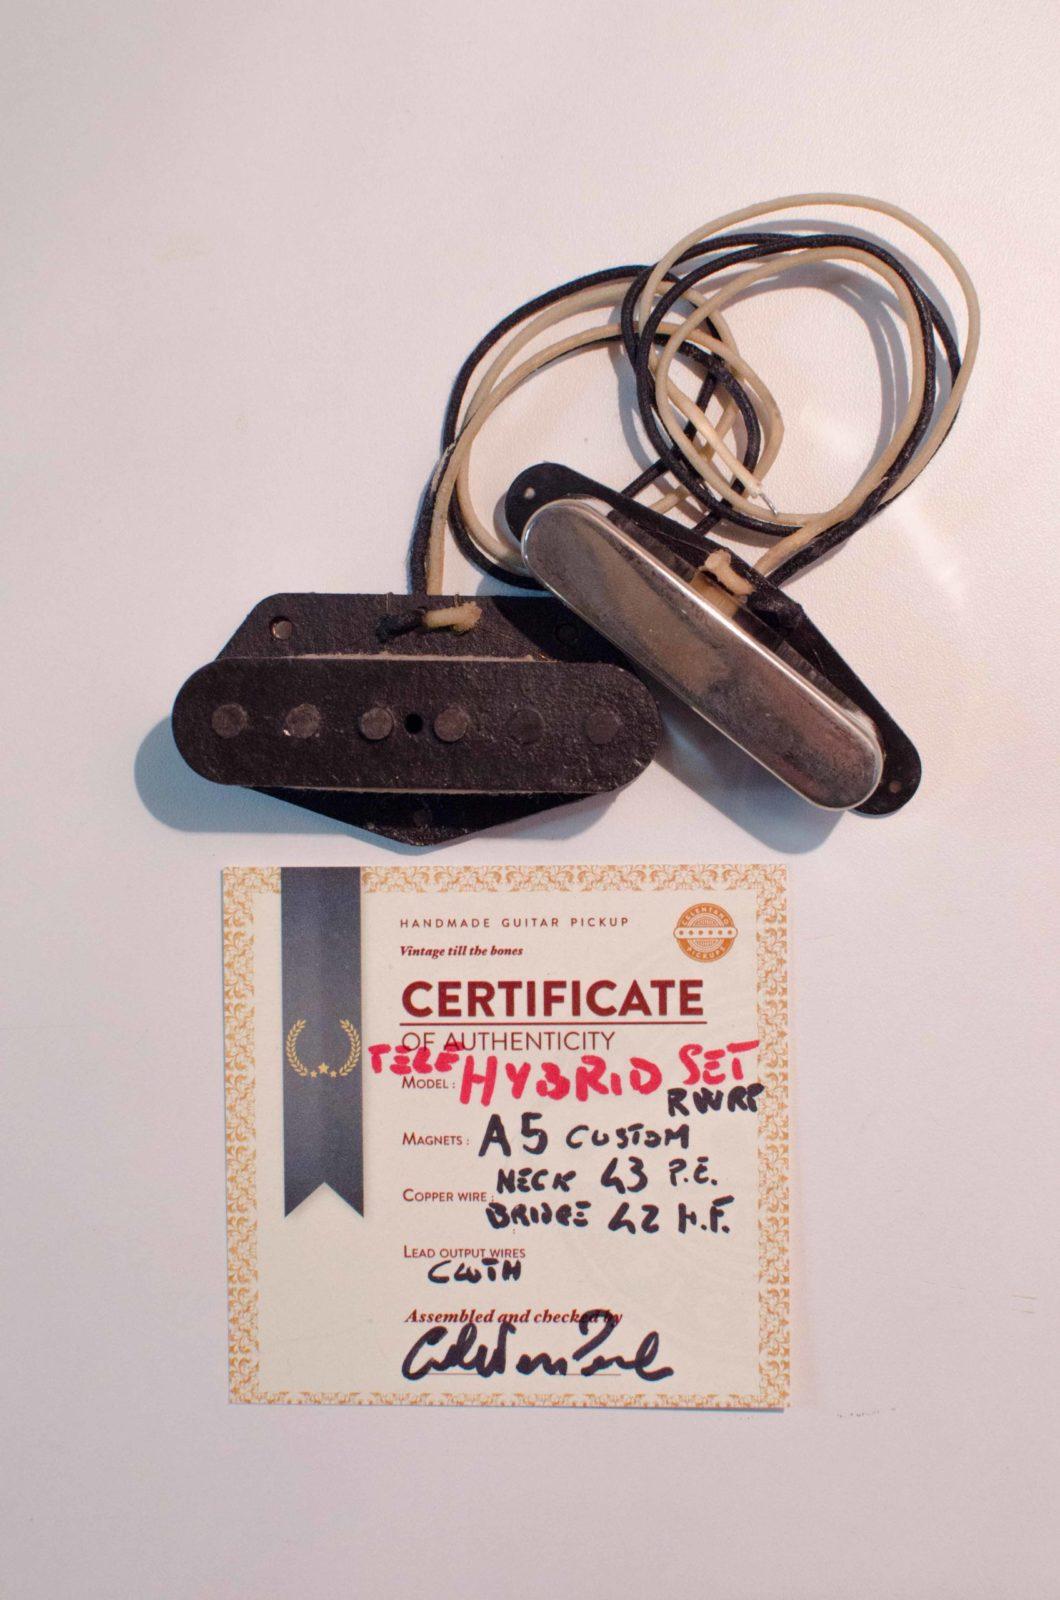 HANDMADE GUITAR PICKUP
Vintage till the bones
CELENTANO
PICKUPS
CERTIFICATE
OF AUTHENTICITY
TELE
MODEL: HYBRID SET
RWRP
MAGNETS: A5 CUSTOM
NECK 43 P.E.
COPPER WIRE:
BRIDGE 42 H.F.
LEAD OUTPUT WIRES
CLOTH
Assembled and checked by